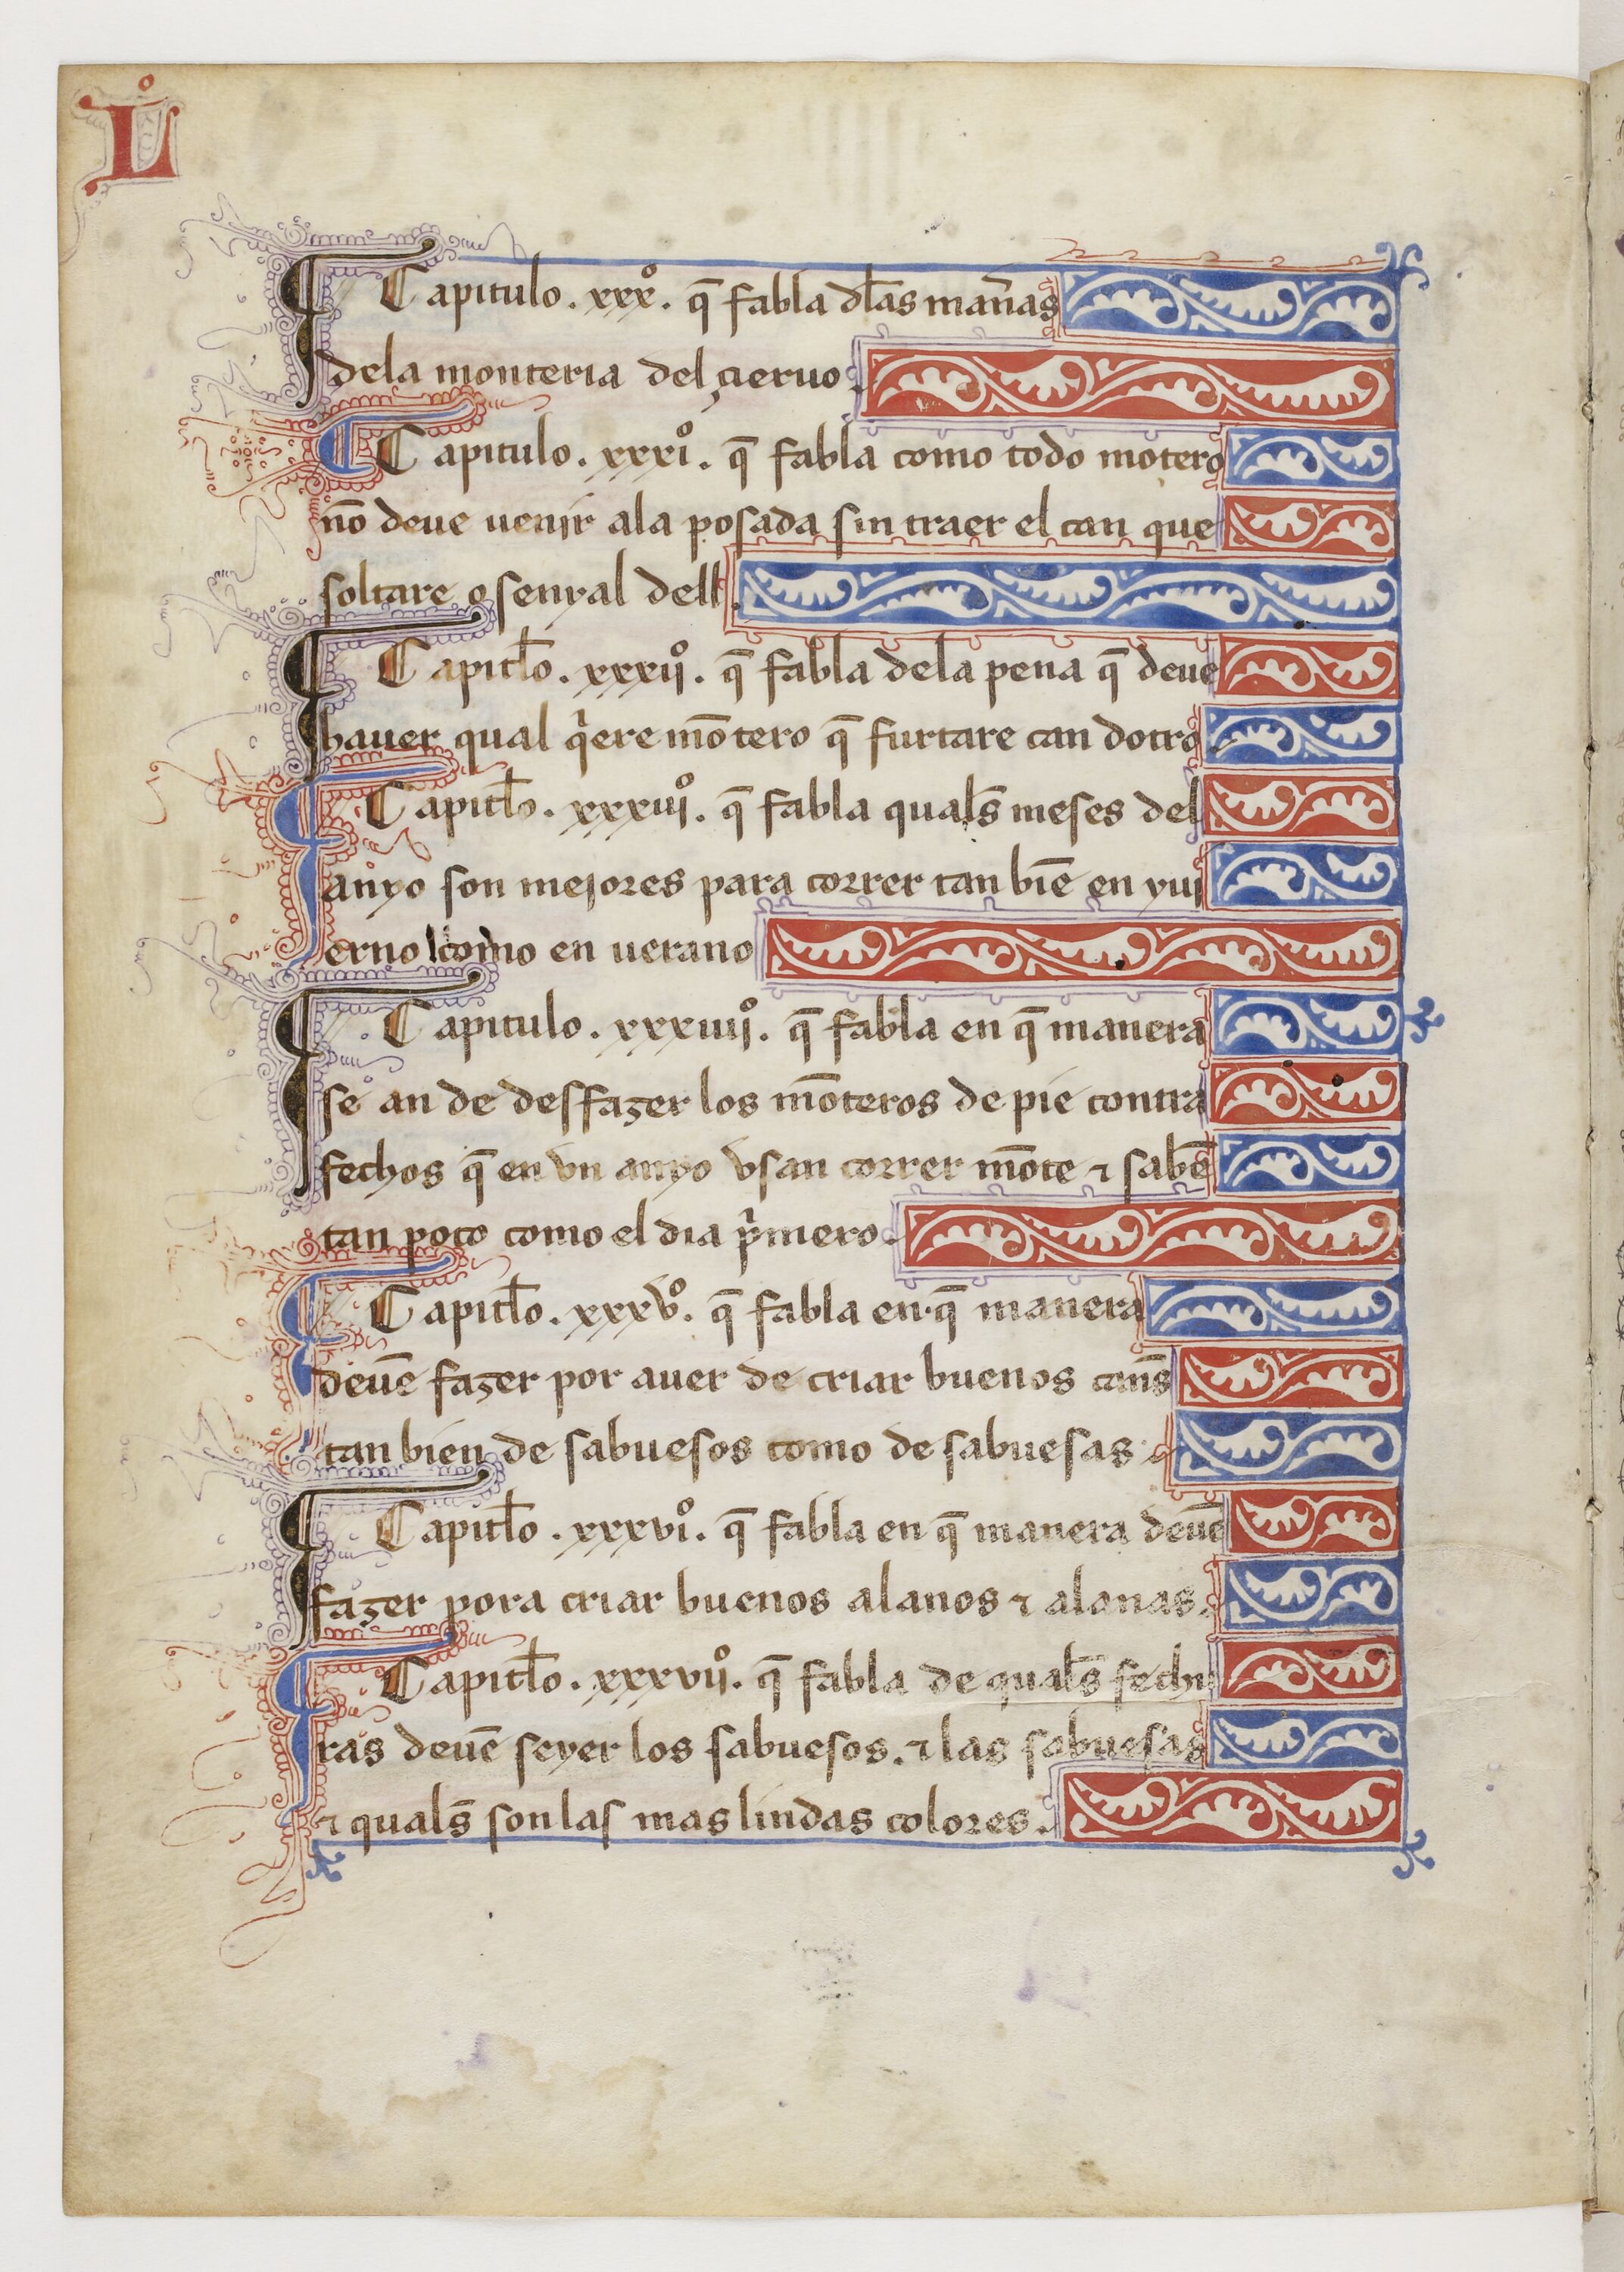 L°
¶ Capitulo . xxx°. q̄ fabla dłas man̄as
dela monteria del çieruo .
¶ Capitulo . xxxi°. q̄ fabla como todo motero
nō deue uenir ala posada sin traer el can que
soltare o senyal dell .
¶ Capitło . xxxij°. q̄ fabla dela pena q̄ deue
hauer qual qͥere mōtero q̄ furtare can dotro
¶ Capitło . xxxiij°. q̄ fabla quals̄ meses del
anyo son mejores para correr tan biē en yui
erno como en uerano
¶ Capitulo . xxxiiij°. q̄ fabla en q̄ manera
se an de desfazer los mōteros de pie contra
fechos q̄ en vn anyo vsan correr mōte ⁊ sabē
tan poco como el dia pͥmero .
¶ Capitło . xxxv°. q̄ fabla en q̄ manera
deuē fazer por auer de criar buenos cans̄
tan bien de sabuesos como de sabuesas .
¶ Capitło . xxxvi°. q̄ fabla en q̄ manera deuē
fazer pora criar buenos alanos ⁊ alanas .
¶ Capitło . xxxvij°. q̄ fabla de quals̄ fechu
ras deuē seyer los sabuesos . ⁊ las sabuesas
⁊ quals̄ son las mas lindas colores .